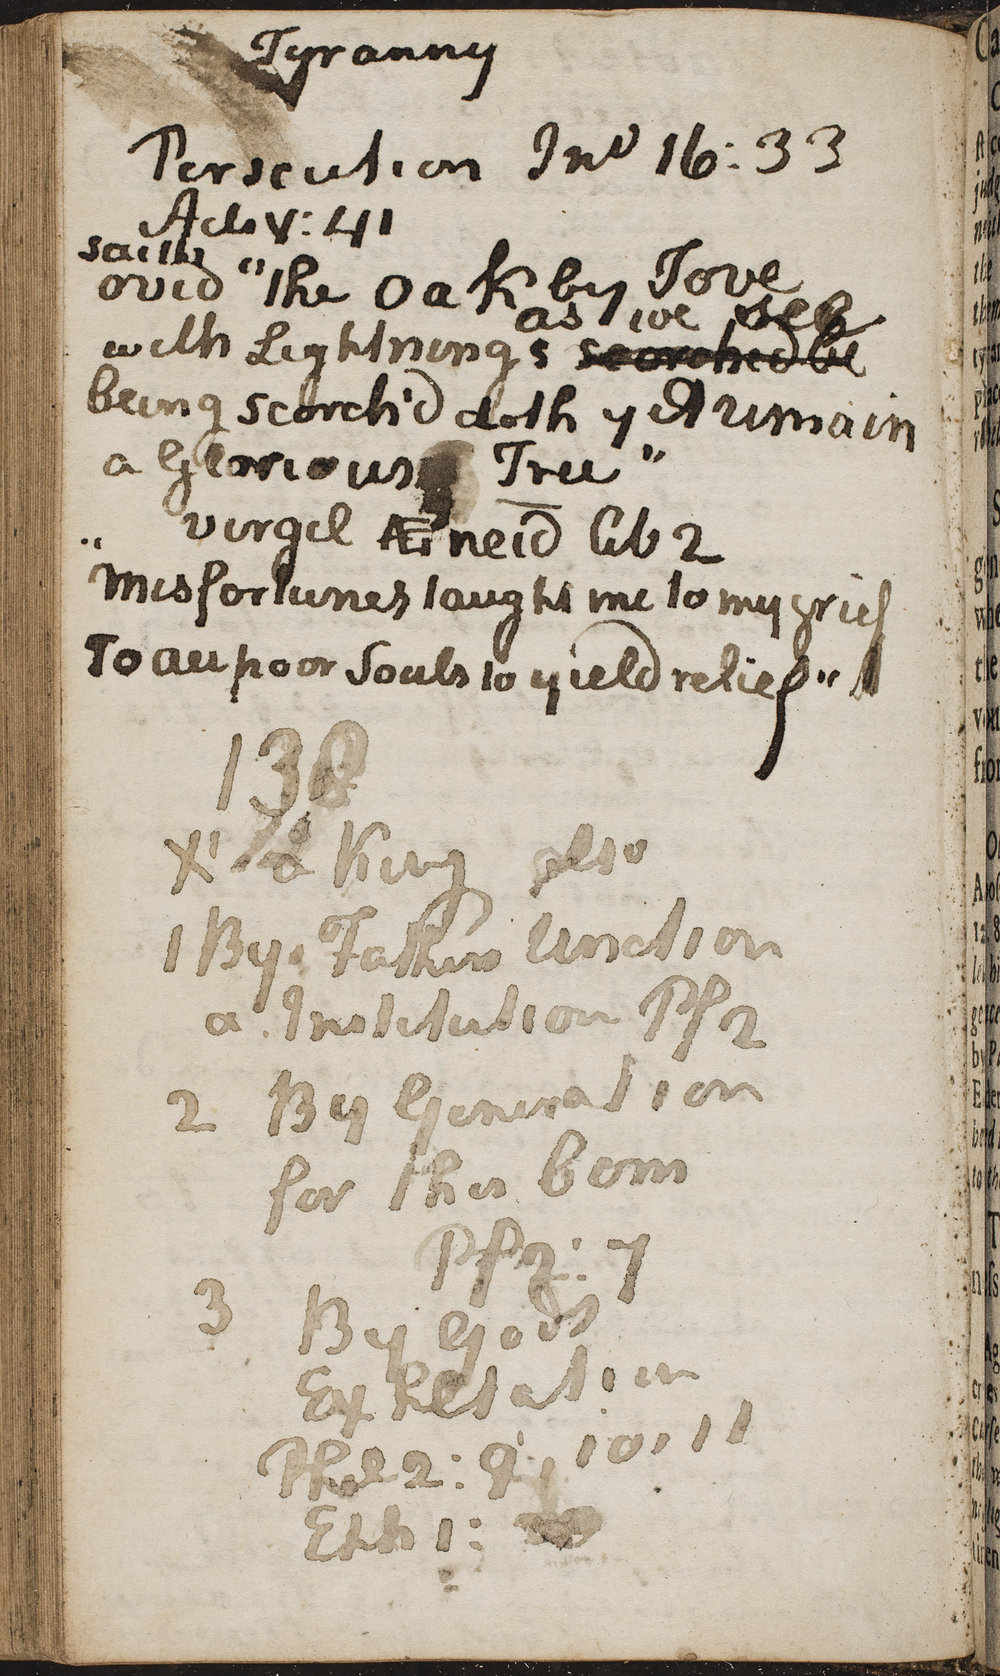 Tyranny
Persecution Jnº 16:33
Acts V: 41
saith
ovid "the Oak by Jove
as we see
with Lightnings scorched be
being scorch'd doth yet remain
a Glorious Tree"
virgil Æneid lib 2
"Misfortunes taught me to my grief
To all poor Souls to yield relief"
138
Xt a King also
1 By Fathers Unction
a Institution Ps 2
2 By Generation
for this born
Ps 2: 7
3 By Gods
Exaltation
Phil 2: 9, 10, 11
Eph 1: